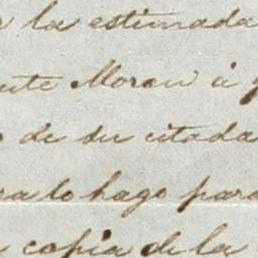 la estimada
Moran á
de su citada
lo hago para
copia de la